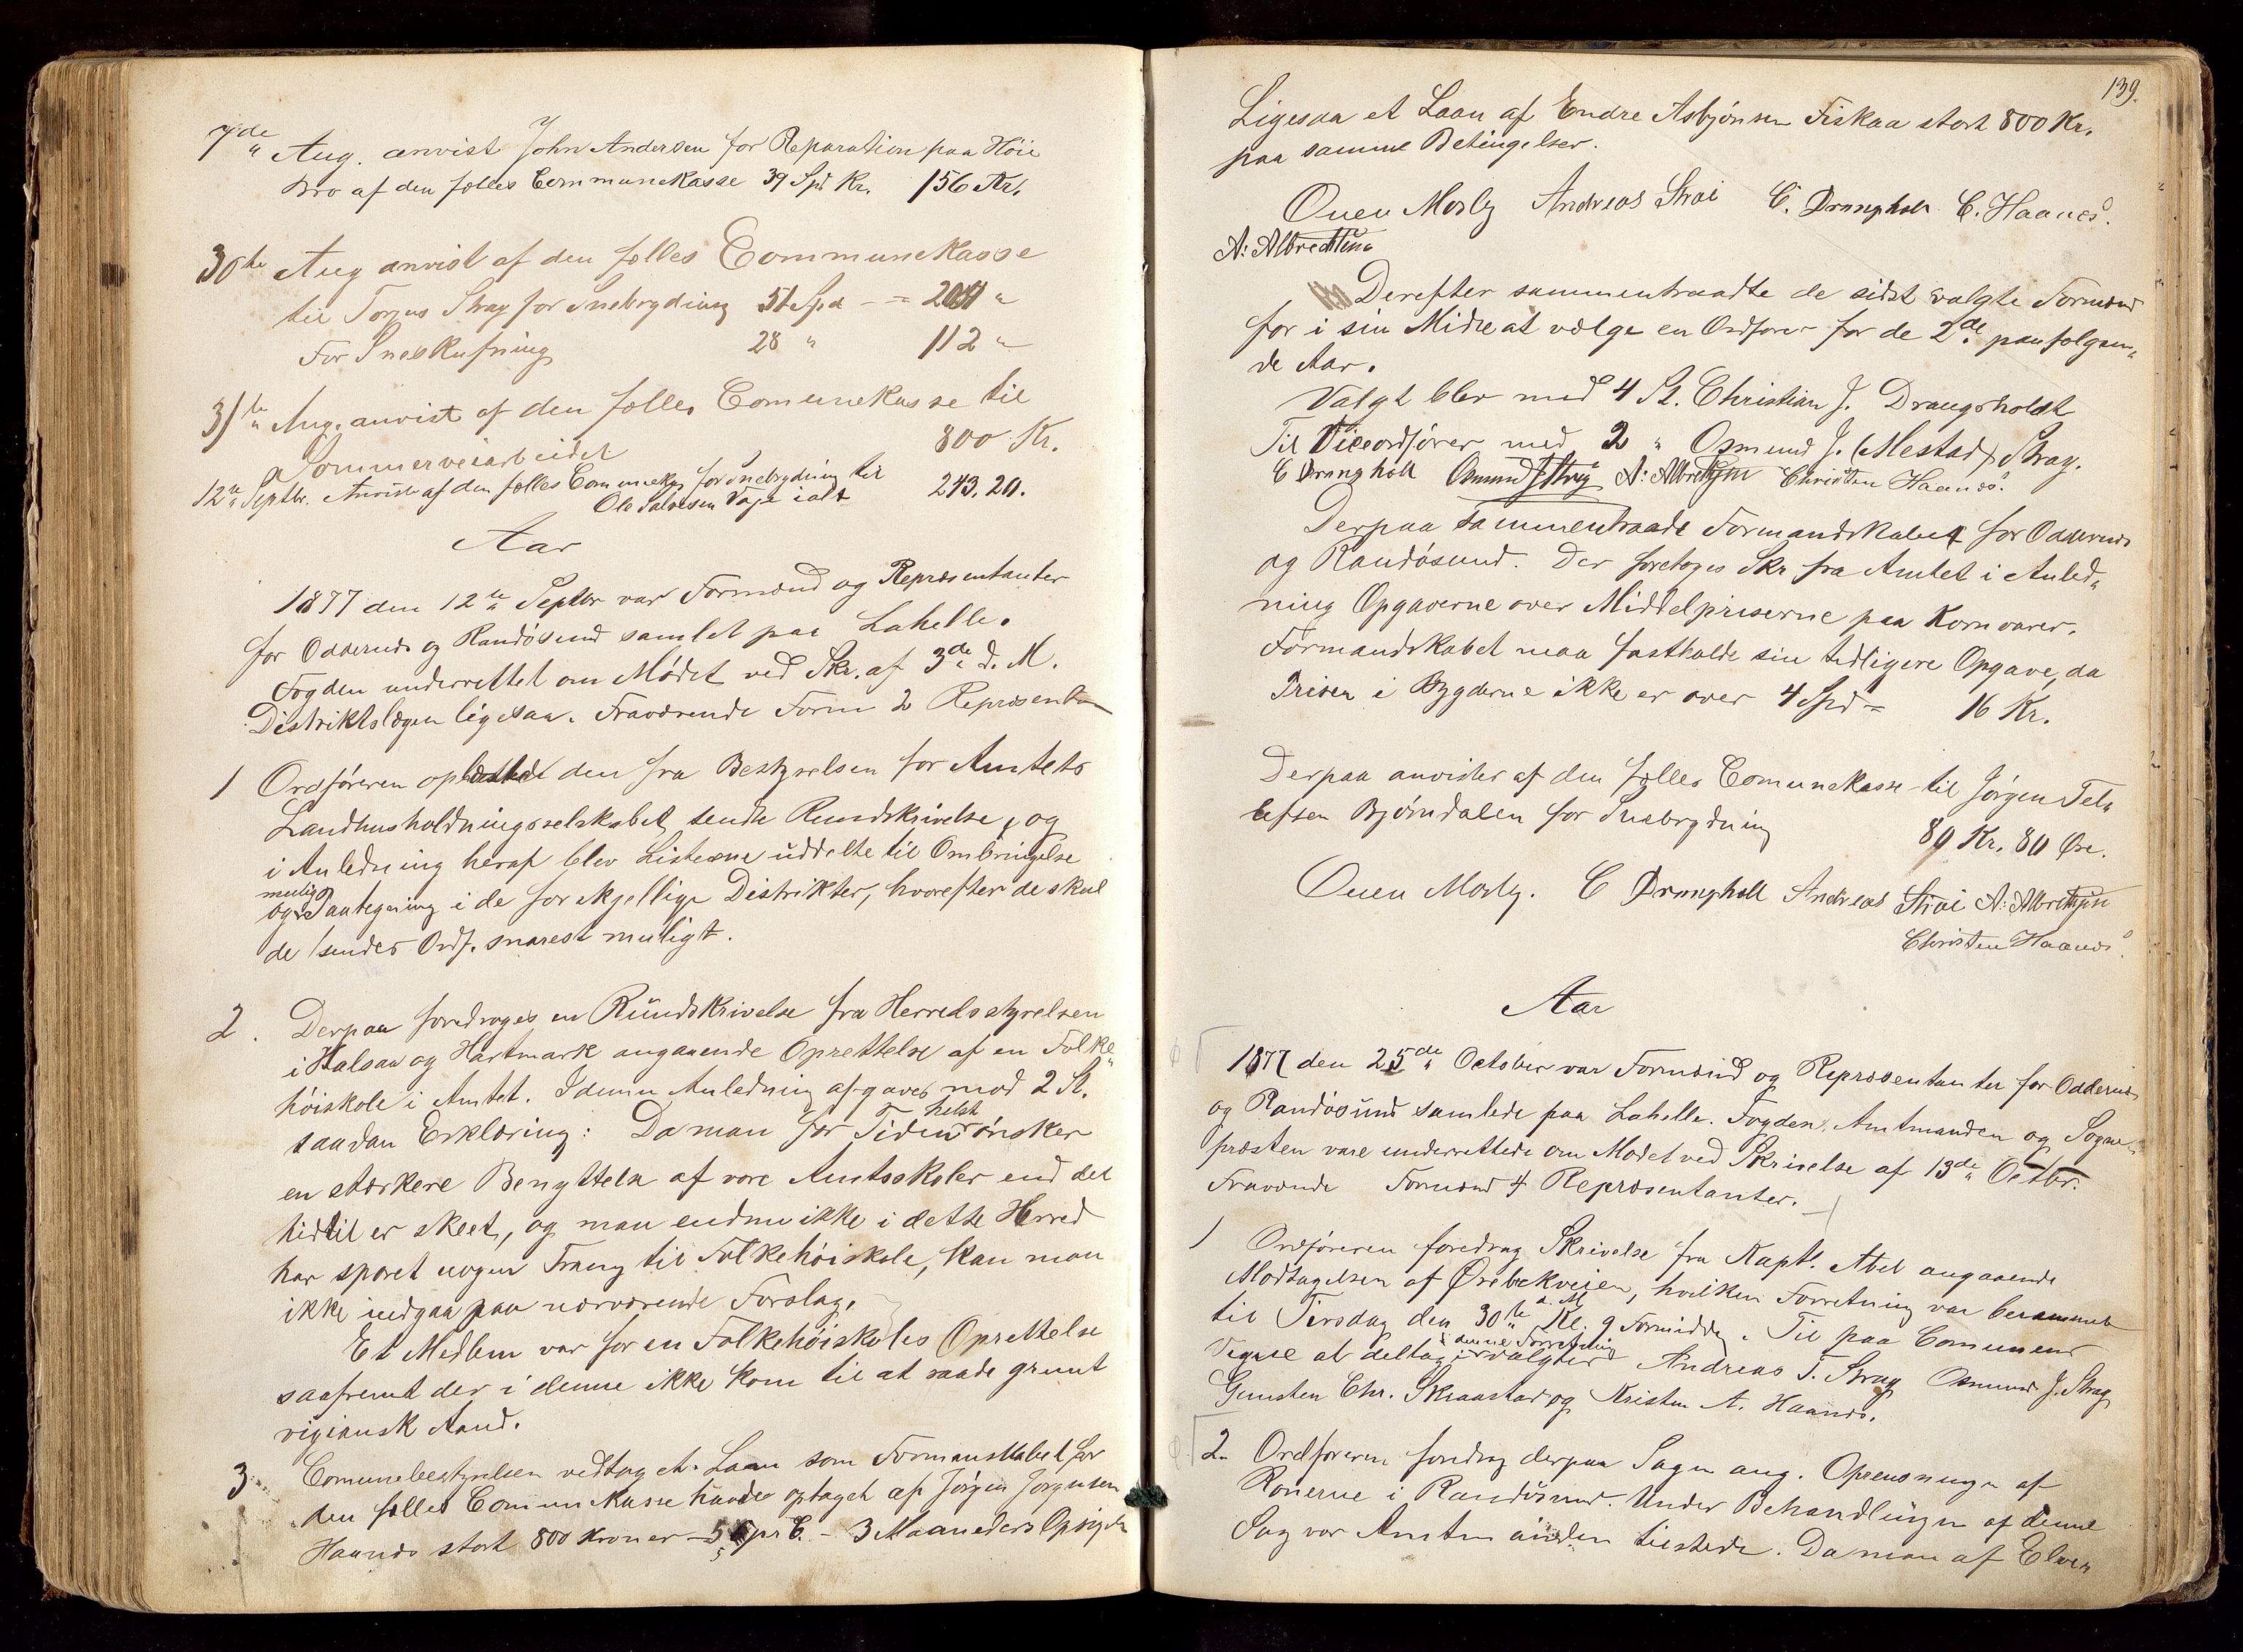 7de Aug. anvist John Andersen for Reparation paa Höie
Bro af den fælles Communekasse 39 Spd. Kr. 156 Kr.
30te Aug anvist af den fælles Communekasse
til Torjus Stray for Snebrydning 51 Spd - = 204 "
For Sneskufning 28 " 112 "
31te Aug. anvist af den fælles Comunekasse til
Sommerveiarbeidet 800 Kr.
12te Septbr. Anvist af den fælles Communekas for Snebrydning til
Ole Salvesen Vaje ialt 243.20.
Aar
1877 den 12te Septbr var Formænd og Repræsentanter
for Oddernes og Randösund samlet paa Lahelle.
Fogden underrettet om Mödet ved Skr. af 3de d. M.
Distriktslægen ligesaa. Fraværende Form 2 Repræsentan
1 Ordföreren oplæste den fra Bestyrelsen for Amtets
Landhusholdningsselskabet sendte Rundskrivelse, og
i Anledning heraf blev Listerne uddelte til Ombringelse
mulig
og Paategning i de forskjellige Distrikter, hvorefter de skul
de sendes Ordf. snarest muligt.
2. Derpaa foredroges en Rundskrivelse fra Herredsstyrelsen
i Halsaa og Hartmark angaaende Oprettelse af en Folke„
höiskole i Amtet. I denne Anledning afgaves mod 2 St.
saadan Erklæring: Da man for Tiden helst önsker
en stærkere Benyttelse af vore Amtsskoler end det
hidtil er skeet, og man endnu ikke i dette Herred
har sporet nogen Trang til Folkehöiskole, kan man
ikke indgaa paa nærværende Forslag.
Et Medlem var for en Folkehöiskoles Oprettelse
saafremt der i denne ikke kom til at raade grunt
vigiansk Aand.
3. Comunebestyrelsen vedtog et Laan som Formanskabet for
den fælles Communekasse havde optaget af Jörgen Jörgensen
Haanes stort 800 Kroner - 5 pr C. - 3 Maaneders Opsigelse
139.
Ligesaa et Laan af Endre Asbjönsen Fiskaa stort 800 Kr.
paa samme Betingelser.
Ouen Mosby Andreas Strai C. Drangholt C. Haanes.
A: Albretsen
Derefter sammentraadte de sidst valgte Formænd
for i sin Midte at vælge en Ordfører for de 2de paafolgen„
de Aar.
Valgt blev med 4 St. Christian J. Drangsholdt
Til Viceordförer med 2 " Osmund J. (Mestad) Stray.
C Drangholt Osmund J Stray A: Albretsen Christen Haanes.
Derpaa sammentraade Formandskabet for Oddernes
og Randösund. Der foretoges Skr fra Amtet i Anled„
ning Opgaverne over Middelpriserne paa Kornvarer.
Formandskabet maa fastholde sin tidligere Opgave, da
Prisen i Bygderne ikke er over 4 Spd = 16 Kr.
Derpaa anvistes af den fælles Comunekasse til Jörgen Tel„
lefsen Bjørndalen for Snebrydning 89 Kr. 80 Øre.
Ouen Mosby. C Drangholt Andreas Strai A: Albretsen
Christen Haanes.
Aar
1877 den 25de October var Formænd og Repræsentanter for Oddernes
og Randösund samlede paa Lahelle. Fogden, Amtmanden og Sogne„
præsten vare underrettede om Mødet ved Skrivelse af 13de Octbr.
Fraværende Formænd 4 Repræsentanter.
1 Ordföreren foredrog Skrivelse fra Kapt. Abel angaaende
Modtagelsen af Ørebækveien, hvilken Forretning var berammet
til Tirsdag den 30te d. M. Kl. 9 Formiddg. Til paa Comunens
Vegne at deltage i denne Forretning valgtes Andreas T. Stray Osmund J. Stray
Gunsten Chr. Skraastad og Kristen A. Haanes.
2. Ordföreren foredrog derpaa Sagen ang. Oprensningen af
Ronerne i Randösund. Under Behandlingen af denne
Sag var Amtmanden tilstede. Da man af Elven